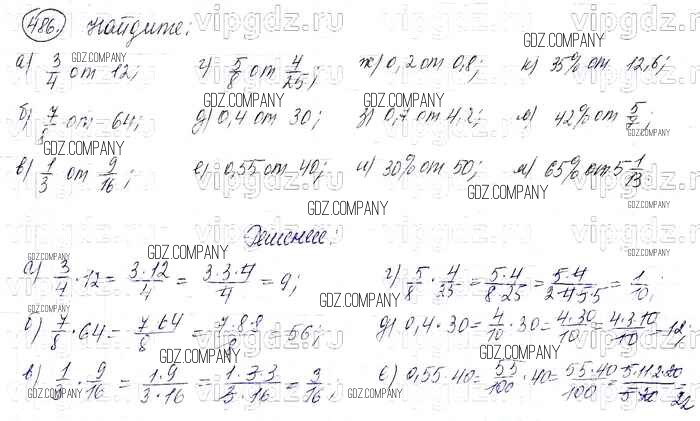 486. Найдите:
а) 3/4 от 12; г) 5/8 от 4/25; ж) 0,2 от 0,8; к) 35% от 12,6;
б) 7/8 от 64; д) 0,4 от 30; з) 0,7 от 4,2; л) 42% от 5/7;
в) 1/3 от 9/16; е) 0,55 от 40; и) 30% от 50; м) 65% от 5 1/13.
Решение:
а) 3/4 · 12 = 3·12/4 = 3·3·4/4 = 9; г) 5/8 · 4/25 = 5·4/8·25 = 5·4/2·4·5·5 = 1/10;
б) 7/8 · 64 = 7·64/8 = 7·8·8/8 = 56; д) 0,4 · 30 = 4/10 · 30 = 4·30/10 = 4·3·10/10 = 12;
в) 1/3 · 9/16 = 1·9/3·16 = 1·3·3/3·16 = 3/16; е) 0,55 · 40 = 55/100 · 40 = 55·40/100 = 5·11·2·20/5·20 = 22
GDZ.COMPANY
vipgdz.ru